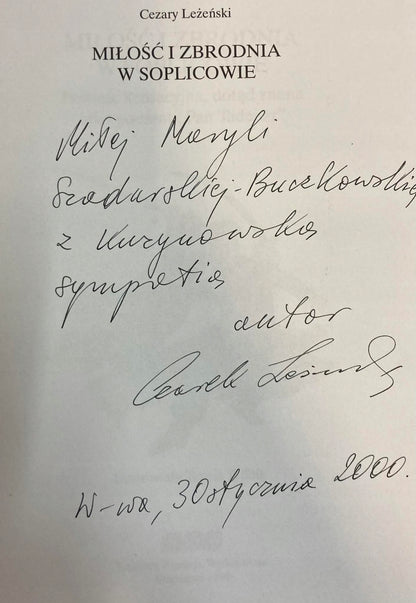 Cezary Leżeński
MIŁOŚĆ I ZBRODNIA
W SOPLICOWIE
Miłej Maryli
Szadurskiej-Buczkowskiej
z Kuzynowską
sympatią
autor
Czarek Leżeński
W-wa, 30 stycznia 2000.